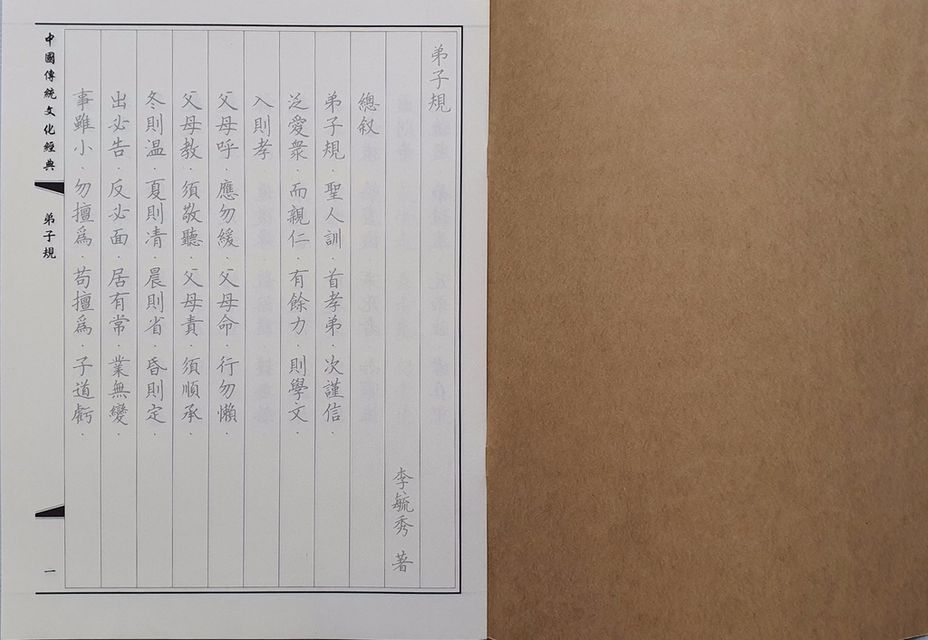 弟子規
李毓秀 著
總叙
弟子規·聖人訓·首孝弟·次謹信·
泛愛衆·而親仁·有餘力·則學文·
入則孝
父母呼·應勿緩·父母命·行勿懶·
父母教·須敬聽·父母責·須順承·
冬則温·夏則凊·晨則省·昏則定·
出必告·反必面·居有常·業無變·
事雖小·勿擅爲·苟擅爲·子道虧·
中國傳統文化經典
弟子規
一